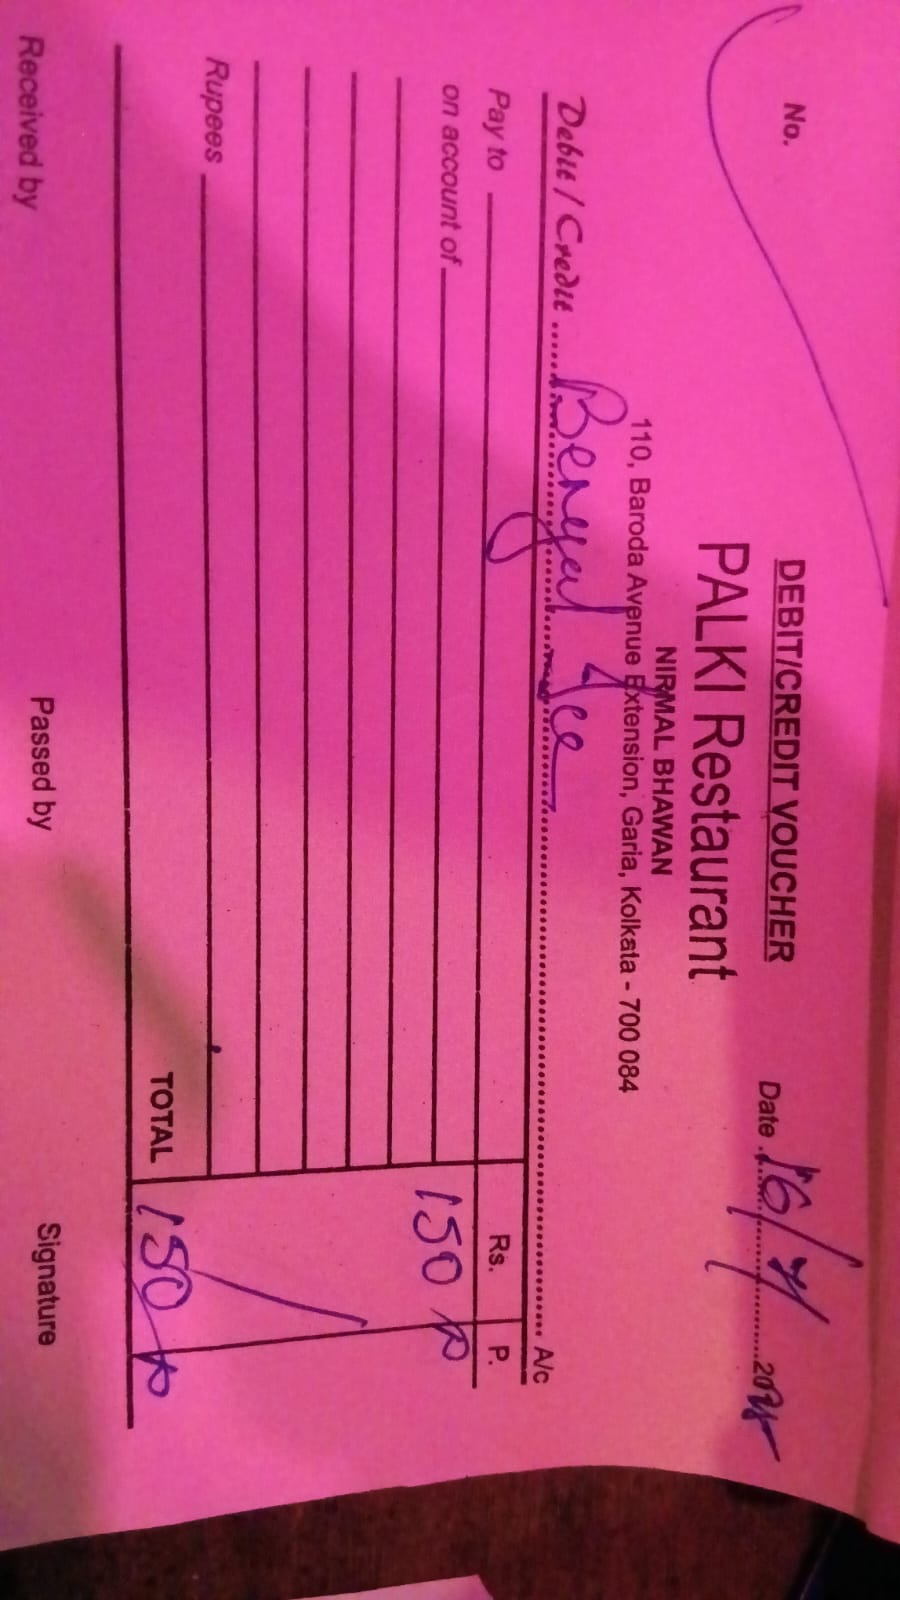 DEBIT/CREDIT VOUCHER
No.
Date 16/7/ 2025
PALKI Restaurant
NIRMAL BHAWAN
110, Baroda Avenue Extension, Garia, Kolkata - 700 084
Debit / Credit Bengal Ice A/c
Pay to Rs. P.
on account of 150
Rupees
TOTAL 150
Received by Passed by Signature